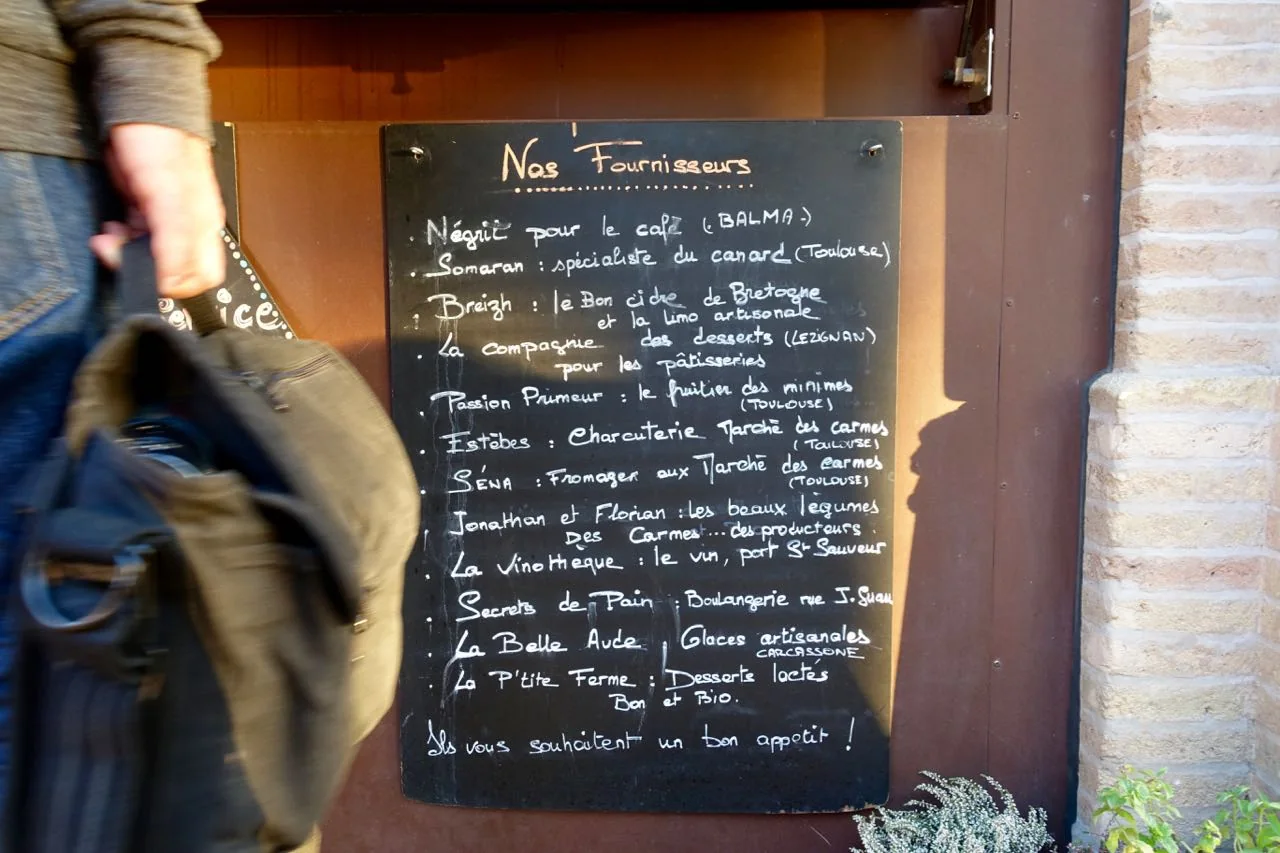 Nos Fournisseurs
. Négrit pour le café (.BALMA.)
. Somaran : spécialiste du canard (Toulouse)
. Breizh : le Bon cidre de Bretagne
et la limo artisonale
. La compagnie des desserts (LEZIGNAN)
pour les pâtisseries
. Passion Primeur : le fruitier des minimes
(TOULOUSE)
. Estèbes : Charcuterie Marché des carmes
(TOULOUSE)
. SÉNA : Fromager aux Marché des carmes
(TOULOUSE)
. Jonathan et Florian : les beaux légumes
Des Carmes... des producteurs.
. La Vinothèque : le vin, port St Sauveur
. Secrets de Pain : Boulangerie rue J.
. La Belle Aude , Glaces artisanales
CARCASSONE
. La P'tite Ferme : Desserts lactés
Bon et Bio.
Ils vous souhaitent un bon appetit !